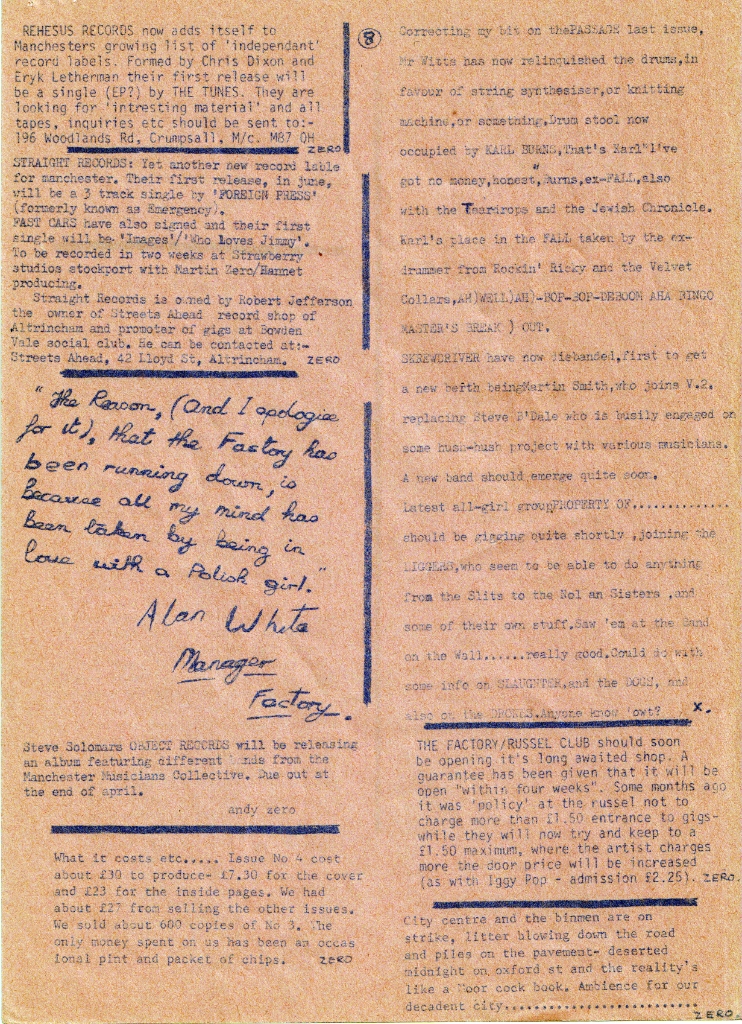 REHESUS RECORDS now adds itself to
Manchesters growing list of 'independant'
record labels. Formed by Chris Dixon and
Eryk Letherman their first release will
be a single (EP?) by THE TUNES. They are
looking for 'intresting material' and all
tapes, inquiries etc should be sent to:-
196 Woodlands Rd, Crumpsall, M/c. M87 OH
ZERO
STRAIGHT RECORDS: Yet another new record lable
for manchester. Their first release, in june,
will be a 3 track single by 'FOREIGN PRESS'
(formerly known as Emergency).
FAST CARS have also signed and their first
single will be 'Images'/'Who Loves Jimmy'.
To be recorded in two weeks at Strawberry
studios stockport with Martin Zero/Hannet
producing.
Straight Records is owned by Robert Jefferson
the owner of Streets Ahead record shop of
Altrincham and promoter of gigs at Bowden
Vale social club. He can be contacted at:-
Streets Ahead, 42 Lloyd St, Altrincham. ZERO
"The Reason, (And I apologise
for it), that the Factory has
been running down, is
because all my mind has
been taken by being in
love with a Polish girl."
Alan White
Manager
Factory.
Steve Solomars OBJECT RECORDS will be releasing
an album featuring different bands from the
Manchester Musicians Collective. Due out at
the end of april.
andy zero
What it costs etc..... Issue No 4 cost
about £30 to produce- £7.30 for the cover
and £23 for the inside pages. We had
about £27 from selling the other issues.
We sold about 600 copies of No 3. The
only money spent on us has been an occas
ional pint and packet of chips. ZERO
8
Correcting my bit on thePASSAGE last issue,
Mr Witts has now relinquished the drums,in
favour of string synthesiser,or knitting
machine,or something,Drum stool now
occupied by KARL BURNS,That's Karl"I've
got no money,honest,"Burns,ex-FALL,also
with the Teardrops and the Jewish Chronicle.
Karl's place in the FALL taken by the ex-
drummer from Rockin' Ricky and the Velvet
Collars,AH)WELL)AH)-BOP-BOP-DEBOOM AHA BINGO
MASTER'S BREAK ) OUT.
SKREWDRIVER have now disbanded,first to get
a new berth beingMartin Smith,who joins V.2.
replacing Steve B'Dale who is busily engaged on
some hush-hush project with various musicians.
A new band should emerge quite soon.
Latest all-girl groupPROPERTY OF..............
should be gigging quite shortly ,joining the
LIGGERS,who seem to be able to do anything
from the Slits to the Nol an Sisters ,and
some of their own stuff.Saw 'em at the Band
on the Wall......really good.Could do with
some info on SLAUGHTER,and the DOGS, and
also on the DRONES.Anyone know 'owt? X.
THE FACTORY/RUSSEL CLUB should soon
be opening it's long awaited shop. A
guarantee has been given that it will be
open "within four weeks". Some months ago
it was 'policy' at the russel not to
charge more than £1.50 entrance to gigs-
while they will now try and keep to a
£1.50 maximum, where the artist charges
more the door price will be increased
(as with Iggy Pop - admission £2.25). ZERO.
City centre and the binmen are on
strike, litter blowing down the road
and piles on the pavement- deserted
midnight on oxford st and the reality's
like a Moor cock book. Ambience for our
decadent city..........................
ZERO.